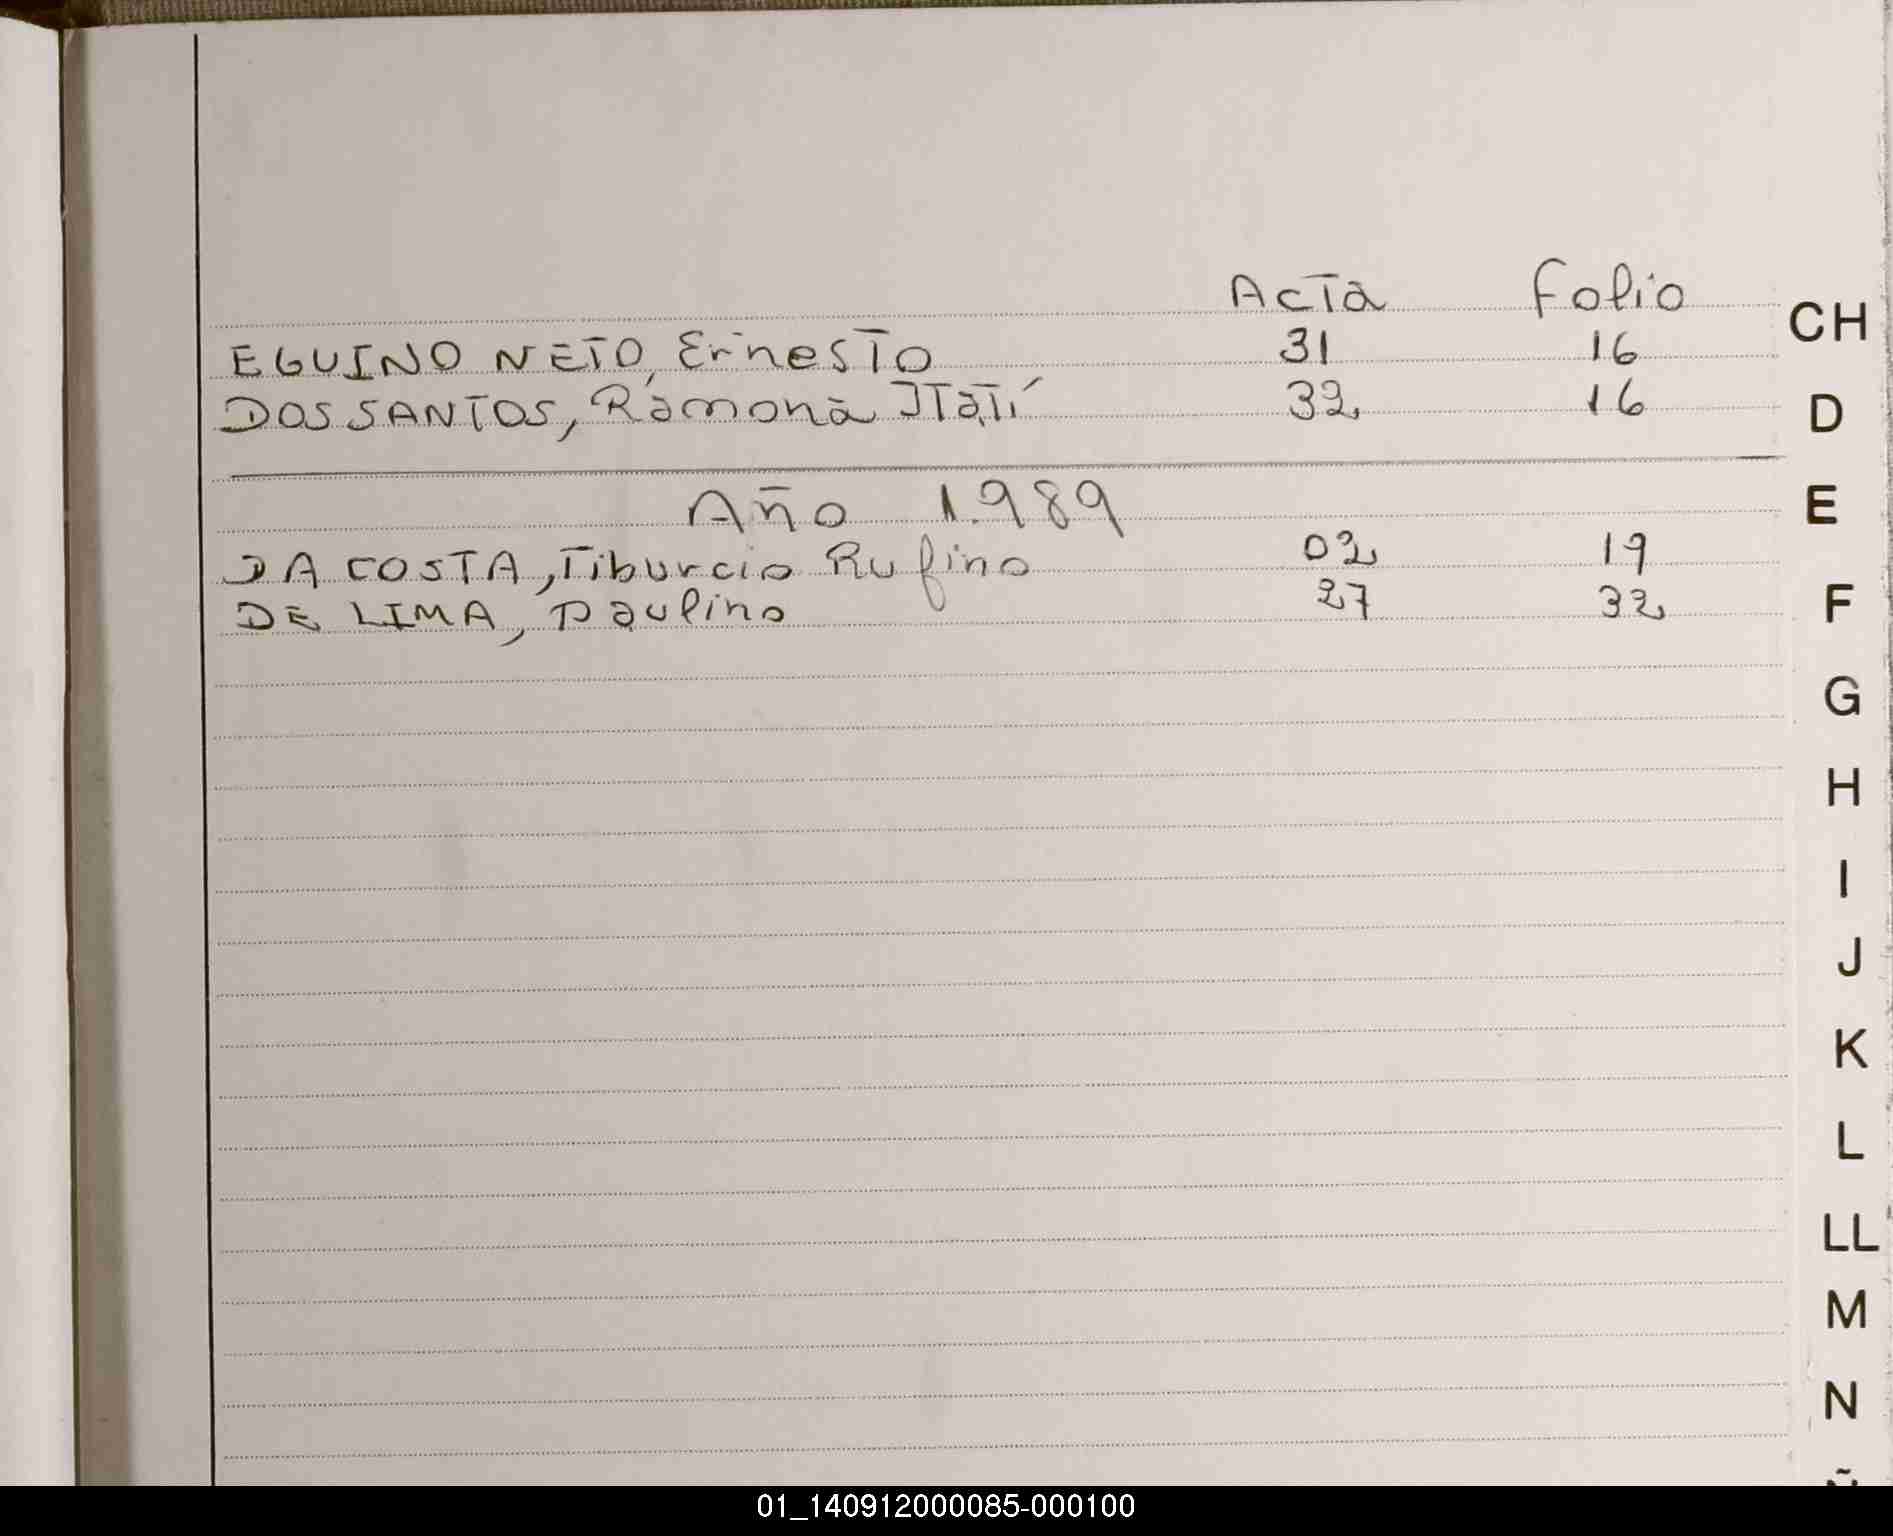 Acta Folio
CH
EGUINO NETO, Ernesto 31 16
DOS SANTOS, Ramona ITatí 32 16
D
E
Año 1.989
DA COSTA, Tiburcio Rufino 02 19
DE LIMA, Paulino 27 32
F
G
H
I
J
K
L
LL
M
N
01_140912000085-000100